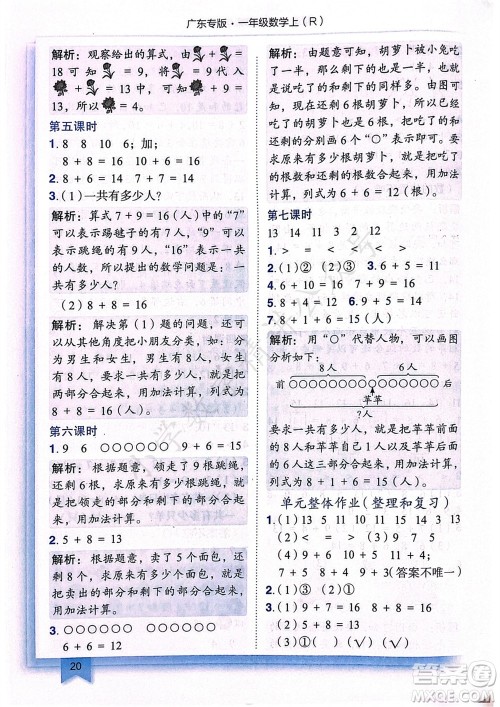 广东专版·一年级数学上(R)
解析：观察给出的算式，由
18 可知 = 13，
13，所以 = 4。
第五课时
1. 8 8 10 6；加；
8 + 8 = 16
2. 8 + 6 = 14 7 + 7 = 14
3. (1)一共有多少人？
解析：算式 7 + 9 = 16（人）中的“7”
可以表示踢毽子的有7人，“9”可以
表示跳绳的有9人，“16”表示一共
的人数，所以提出的数学问题是：一共
有多少人？
(2) 8 + 8 = 16
解析：解决第(1)题的问题，还可以
从其他角度把小朋友分类，如分为
男生和女生，男生有8人，女生有8
人，要求一共有多少人，就是把这
两部分合起来，用加法计算，列式为
8 + 8 = 16（人）。
第六课时
1. 9 6 ○○○○○○ 9 + 6 = 15
解析：根据题意，领走了9根跳绳，
还剩6根，要求原来有多少根，就是
把领走的部分和剩下的部分合起
来，用加法计算。
2. 5 + 8 = 13
解析：根据题意，卖了5个面包，还
剩8个，要求原来有多少个面包，就
是把卖了的部分和剩下的部分合起
来，用加法计算。
3. ○○○○○○ ○○○○○○
6 + 6 = 12
解析：根据题意，胡萝卜被小兔吃
了一半，那么剩下的胡萝卜和小兔
吃了的同样多。从图中可以看出还
剩6根胡萝卜，说明吃了6根，吃的
和还剩的分别画6个“○”表示即可。
要求原来有多少根胡萝卜，就是把
吃了的部分和剩下的部分合起来，
用加法计算，列式为 6 + 6 = 12（根）。
第七课时
13 14 11 12 13
1. > = < >
2. (1)② (2)③ (3)①
3. 6 + 5 = 11
4. 9 + 4 = 13 5. 9 + 6 = 15
6. 7 + 8 = 15
7. 8 + 1 + 6 = 15（人）
解析：用“○”代替人物，可以画图
分析如下：
8人 6人
前○○○○○○○○○○○○○○○
莘莘
?人
要求一共有多少人，就是把莘莘前面
的8人和莘莘以及后面的6人合起
来，莘莘自己是1人，所以用加法计
算，列式为 8 + 1 + 6 = 15（人）。
单元整体作业（整理和复习）
1. (1) 13 14 12 11 15 13
(2) > > < =
2. 4 + 8 = 12 5 + 7 = 12
7 + 5 = 12 9 + 3 = 12（答案不唯一）
3. (1)② (2)③ (3)①
4. 8 + 5 = 13
5. (1)(√)( )(√)
20